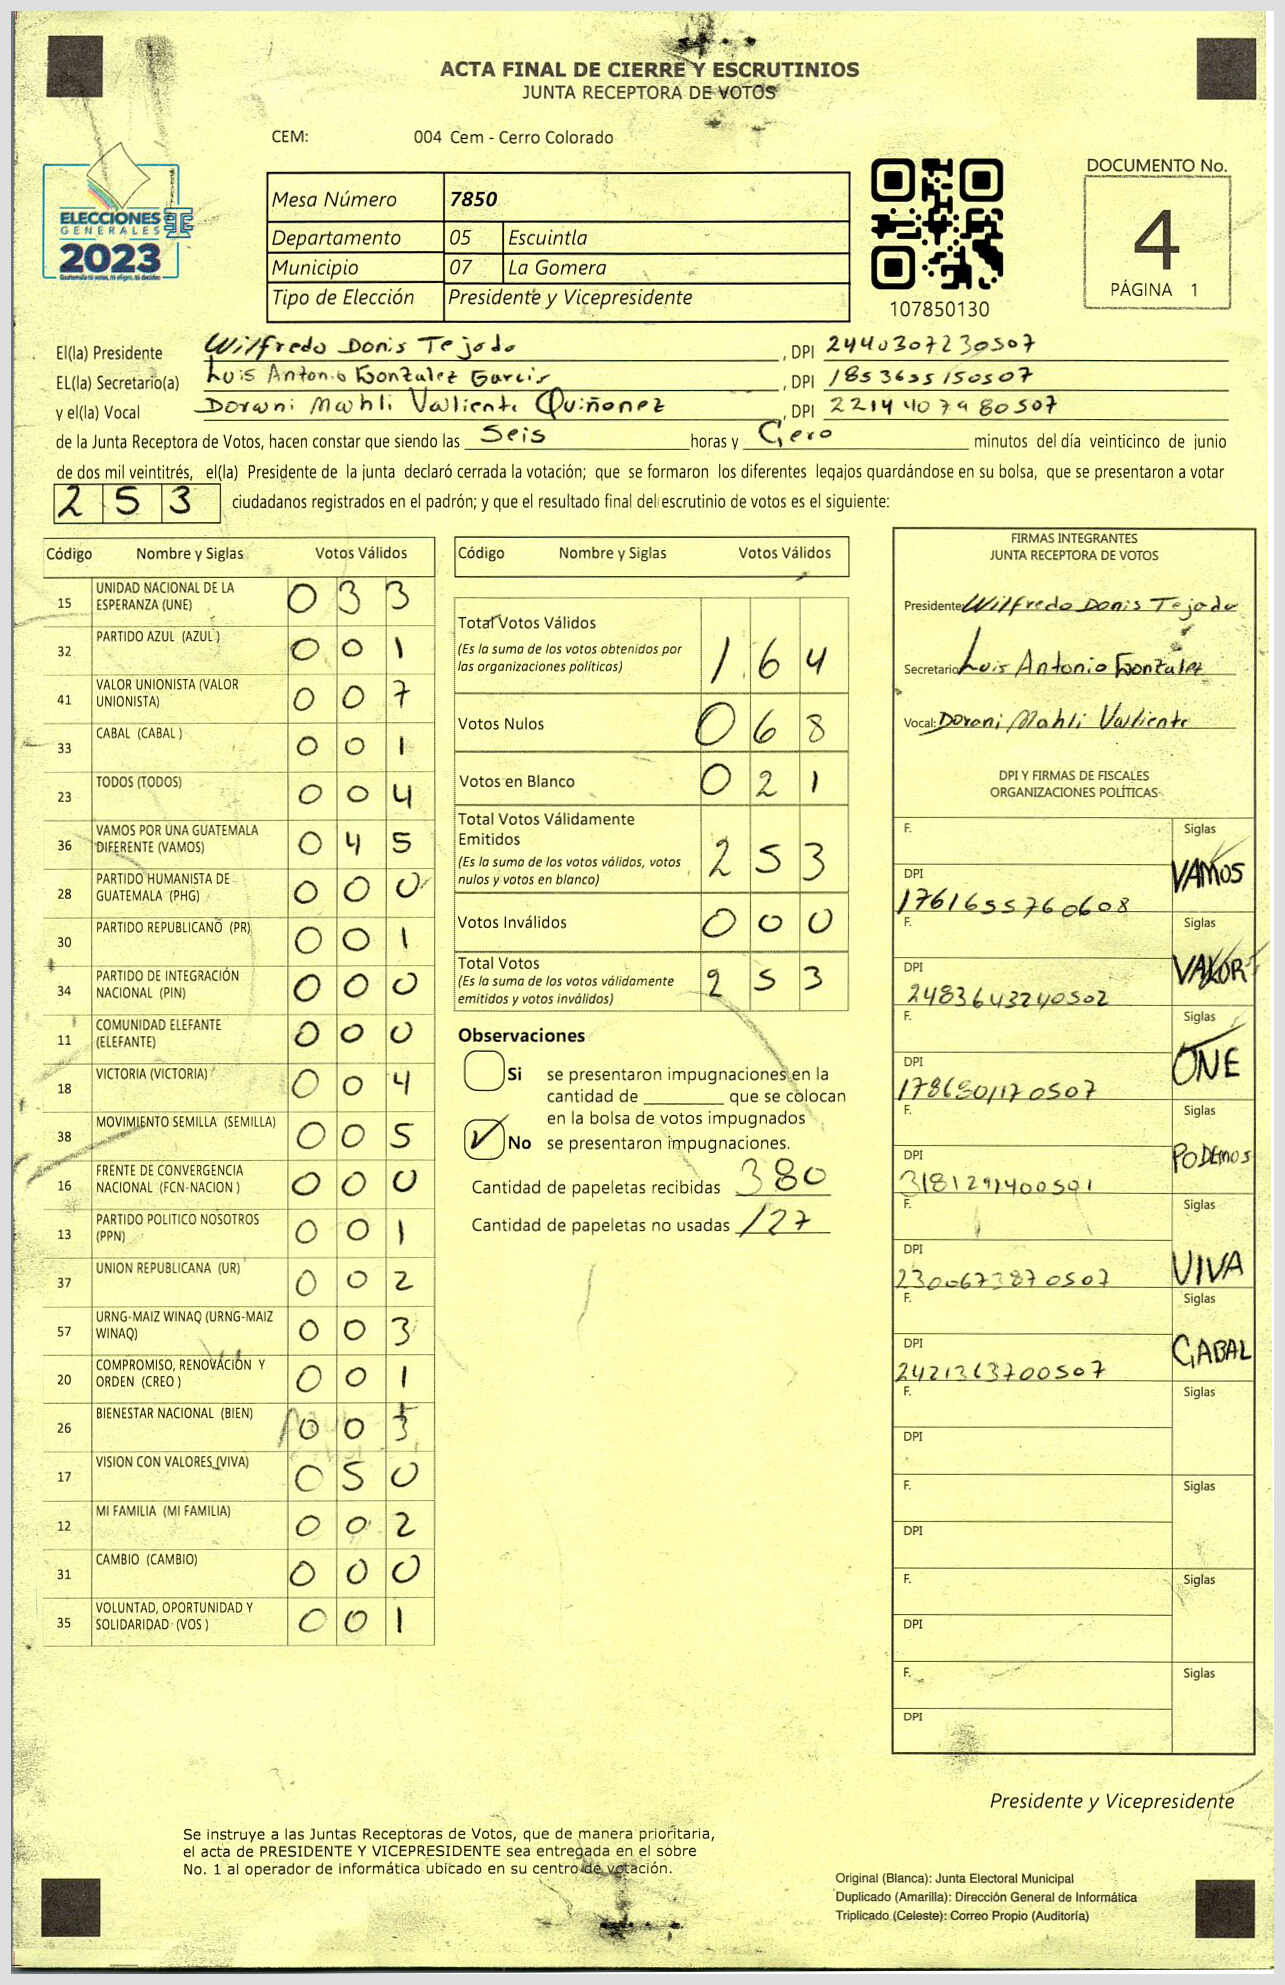 ACTA FINAL DE CIERRE Y ESCRUTINIOS
JUNTA RECEPTORA DE VOTOS
CEM: 004 Cem - Cerro Colorado
ELECCIONES
GENERALES
2023
Mesa Número 7850
Departamento 05 Escuintla
Municipio 07 La Gomera
Tipo de Elección Presidente y Vicepresidente
107850130
DOCUMENTO No.
4
PÁGINA 1
El(la) Presidente Wilfredo Donis Tejada , DPI 2440307230507
EL(la) Secretario(a) Luis Antonio Gonzalez Garcis , DPI 1853655150507
y el(la) Vocal Dorani Mahli Valiente Quiñonez , DPI 2214407980507
de la Junta Receptora de Votos, hacen constar que siendo las Seis horas y Cero minutos del día veinticinco de junio
de dos mil veintitrés, el(la) Presidente de la junta declaró cerrada la votación; que se formaron los diferentes legajos guardándose en su bolsa, que se presentaron a votar
253 ciudadanos registrados en el padrón; y que el resultado final del escrutinio de votos es el siguiente:
Código Nombre y Siglas Votos Válidos
15 UNIDAD NACIONAL DE LA ESPERANZA (UNE) 033
32 PARTIDO AZUL (AZUL ) 001
41 VALOR UNIONISTA (VALOR UNIONISTA) 007
33 CABAL (CABAL ) 001
23 TODOS (TODOS) 004
36 VAMOS POR UNA GUATEMALA DIFERENTE (VAMOS) 045
28 PARTIDO HUMANISTA DE GUATEMALA (PHG) 000
30 PARTIDO REPUBLICANO (PR) 001
34 PARTIDO DE INTEGRACIÓN NACIONAL (PIN) 000
11 COMUNIDAD ELEFANTE (ELEFANTE) 000
18 VICTORIA (VICTORIA) 004
38 MOVIMIENTO SEMILLA (SEMILLA) 005
16 FRENTE DE CONVERGENCIA NACIONAL (FCN-NACION ) 000
13 PARTIDO POLITICO NOSOTROS (PPN) 001
37 UNION REPUBLICANA (UR) 002
57 URNG-MAIZ WINAQ (URNG-MAIZ WINAQ) 003
20 COMPROMISO, RENOVACIÓN Y ORDEN (CREO ) 001
26 BIENESTAR NACIONAL (BIEN) 003
17 VISION CON VALORES (VIVA) 050
12 MI FAMILIA (MI FAMILIA) 002
31 CAMBIO (CAMBIO) 000
35 VOLUNTAD, OPORTUNIDAD Y SOLIDARIDAD (VOS ) 001
Código Nombre y Siglas Votos Válidos
Total Votos Válidos
(Es la suma de los votos obtenidos por
las organizaciones políticas) 164
Votos Nulos 068
Votos en Blanco 021
Total Votos Válidamente
Emitidos
(Es la suma de los votos válidos, votos
nulos y votos en blanco) 253
Votos Inválidos 000
Total Votos
(Es la suma de los votos válidamente
emitidos y votos inválidos) 253
Observaciones
Si se presentaron impugnaciones en la
cantidad de ________ que se colocan
en la bolsa de votos impugnados
No se presentaron impugnaciones.
Cantidad de papeletas recibidas 380
Cantidad de papeletas no usadas 127
FIRMAS INTEGRANTES
JUNTA RECEPTORA DE VOTOS
Presidente: Wilfredo Donis Tejada
Secretario: Luis Antonio Gonzalez
Vocal: Dorani Mahli Valiente
DPI Y FIRMAS DE FISCALES
ORGANIZACIONES POLÍTICAS
F. Siglas
DPI VAMOS
1761655760608
F. Siglas
DPI VALOR
2483643240502
F. Siglas
DPI UNE
F. Siglas
DPI PODEMOS
3181291400501
F. Siglas
DPI VIVA
2300673870507
F. Siglas
DPI CABAL
2421363700507
F. Siglas
DPI
F. Siglas
DPI
F. Siglas
DPI
F. Siglas
DPI
Presidente y Vicepresidente
Se instruye a las Juntas Receptoras de Votos, que de manera prioritaria,
el acta de PRESIDENTE Y VICEPRESIDENTE sea entregada en el sobre
No. 1 al operador de informática ubicado en su centro de votación.
Original (Blanca): Junta Electoral Municipal
Duplicado (Amarilla): Dirección General de Informática
Triplicado (Celeste): Correo Propio (Auditoría)